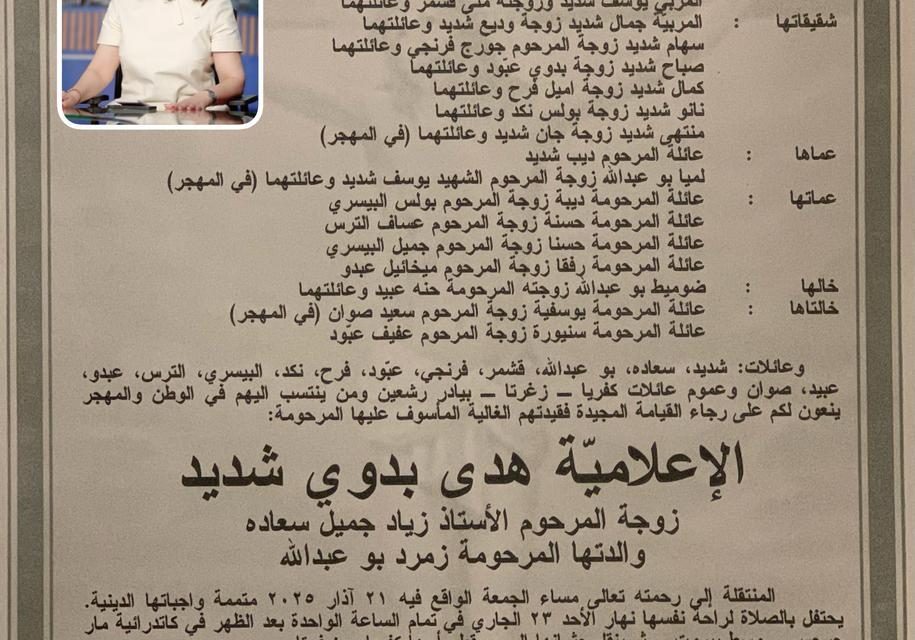 المربي يوسف شديد وزوجته منى قشمر وعائلتهما
شقيقاتها : المربيّة جمال شديد زوجة وديع شديد وعائلتهما
سهام شديد زوجة المرحوم جورج فرنجي وعائلتهما
صباح شديد زوجة بدوي عبّود وعائلتهما
كمال شديد زوجة اميل فرح وعائلتهما
نانو شديد زوجة بولس نكد وعائلتهما
منتهى شديد زوجة جان شديد وعائلتهما (في المهجر)
عماها : عائلة المرحوم ديب شديد
لميا بو عبدالله زوجة المرحوم الشهيد يوسف شديد وعائلتهما (في المهجر)
عماتها : عائلة المرحومة ديبة زوجة المرحوم بولس البيسري
عائلة المرحومة حسنة زوجة المرحوم عساف الترس
عائلة المرحومة حسنا زوجة المرحوم جميل البيسري
عائلة المرحومة رفقا زوجة المرحوم ميخائيل عبدو
خالها : ضوميط بو عبدالله زوجته المرحومة حنه عبيد وعائلتهما
خالتاها : عائلة المرحومة يوسفية زوجة المرحوم سعيد صوان (في المهجر)
عائلة المرحومة سنيورة زوجة المرحوم عفيف عبّود
وعائلات: شديد، سعاده، بو عبدالله، قشمر، فرنجي، عبّود، فرح، نكد، البيسري، الترس، عبدو،
عبيد، صوان وعموم عائلات كفريا ــ زغرتا ــ بيادر رشعين ومن ينتسب اليهم في الوطن والمهجر
ينعون لكم على رجاء القيامة المجيدة فقيدتهم الغالية المأسوف عليها المرحومة:
الإعلاميّة هدى بدوي شديد
زوجة المرحوم الأستاذ زياد جميل سعاده
والدتها المرحومة زمرد بو عبدالله
المنتقلة إلى رحمته تعالى مساء الجمعة الواقع فيه ٢١ آذار ٢٠٢٥ متممة واجباتها الدينية.
يحتفل بالصلاة لراحة نفسها نهار الأحد ٢٣ الجاري في تمام الساعة الواحدة بعد الظهر في كاتدرائية مار